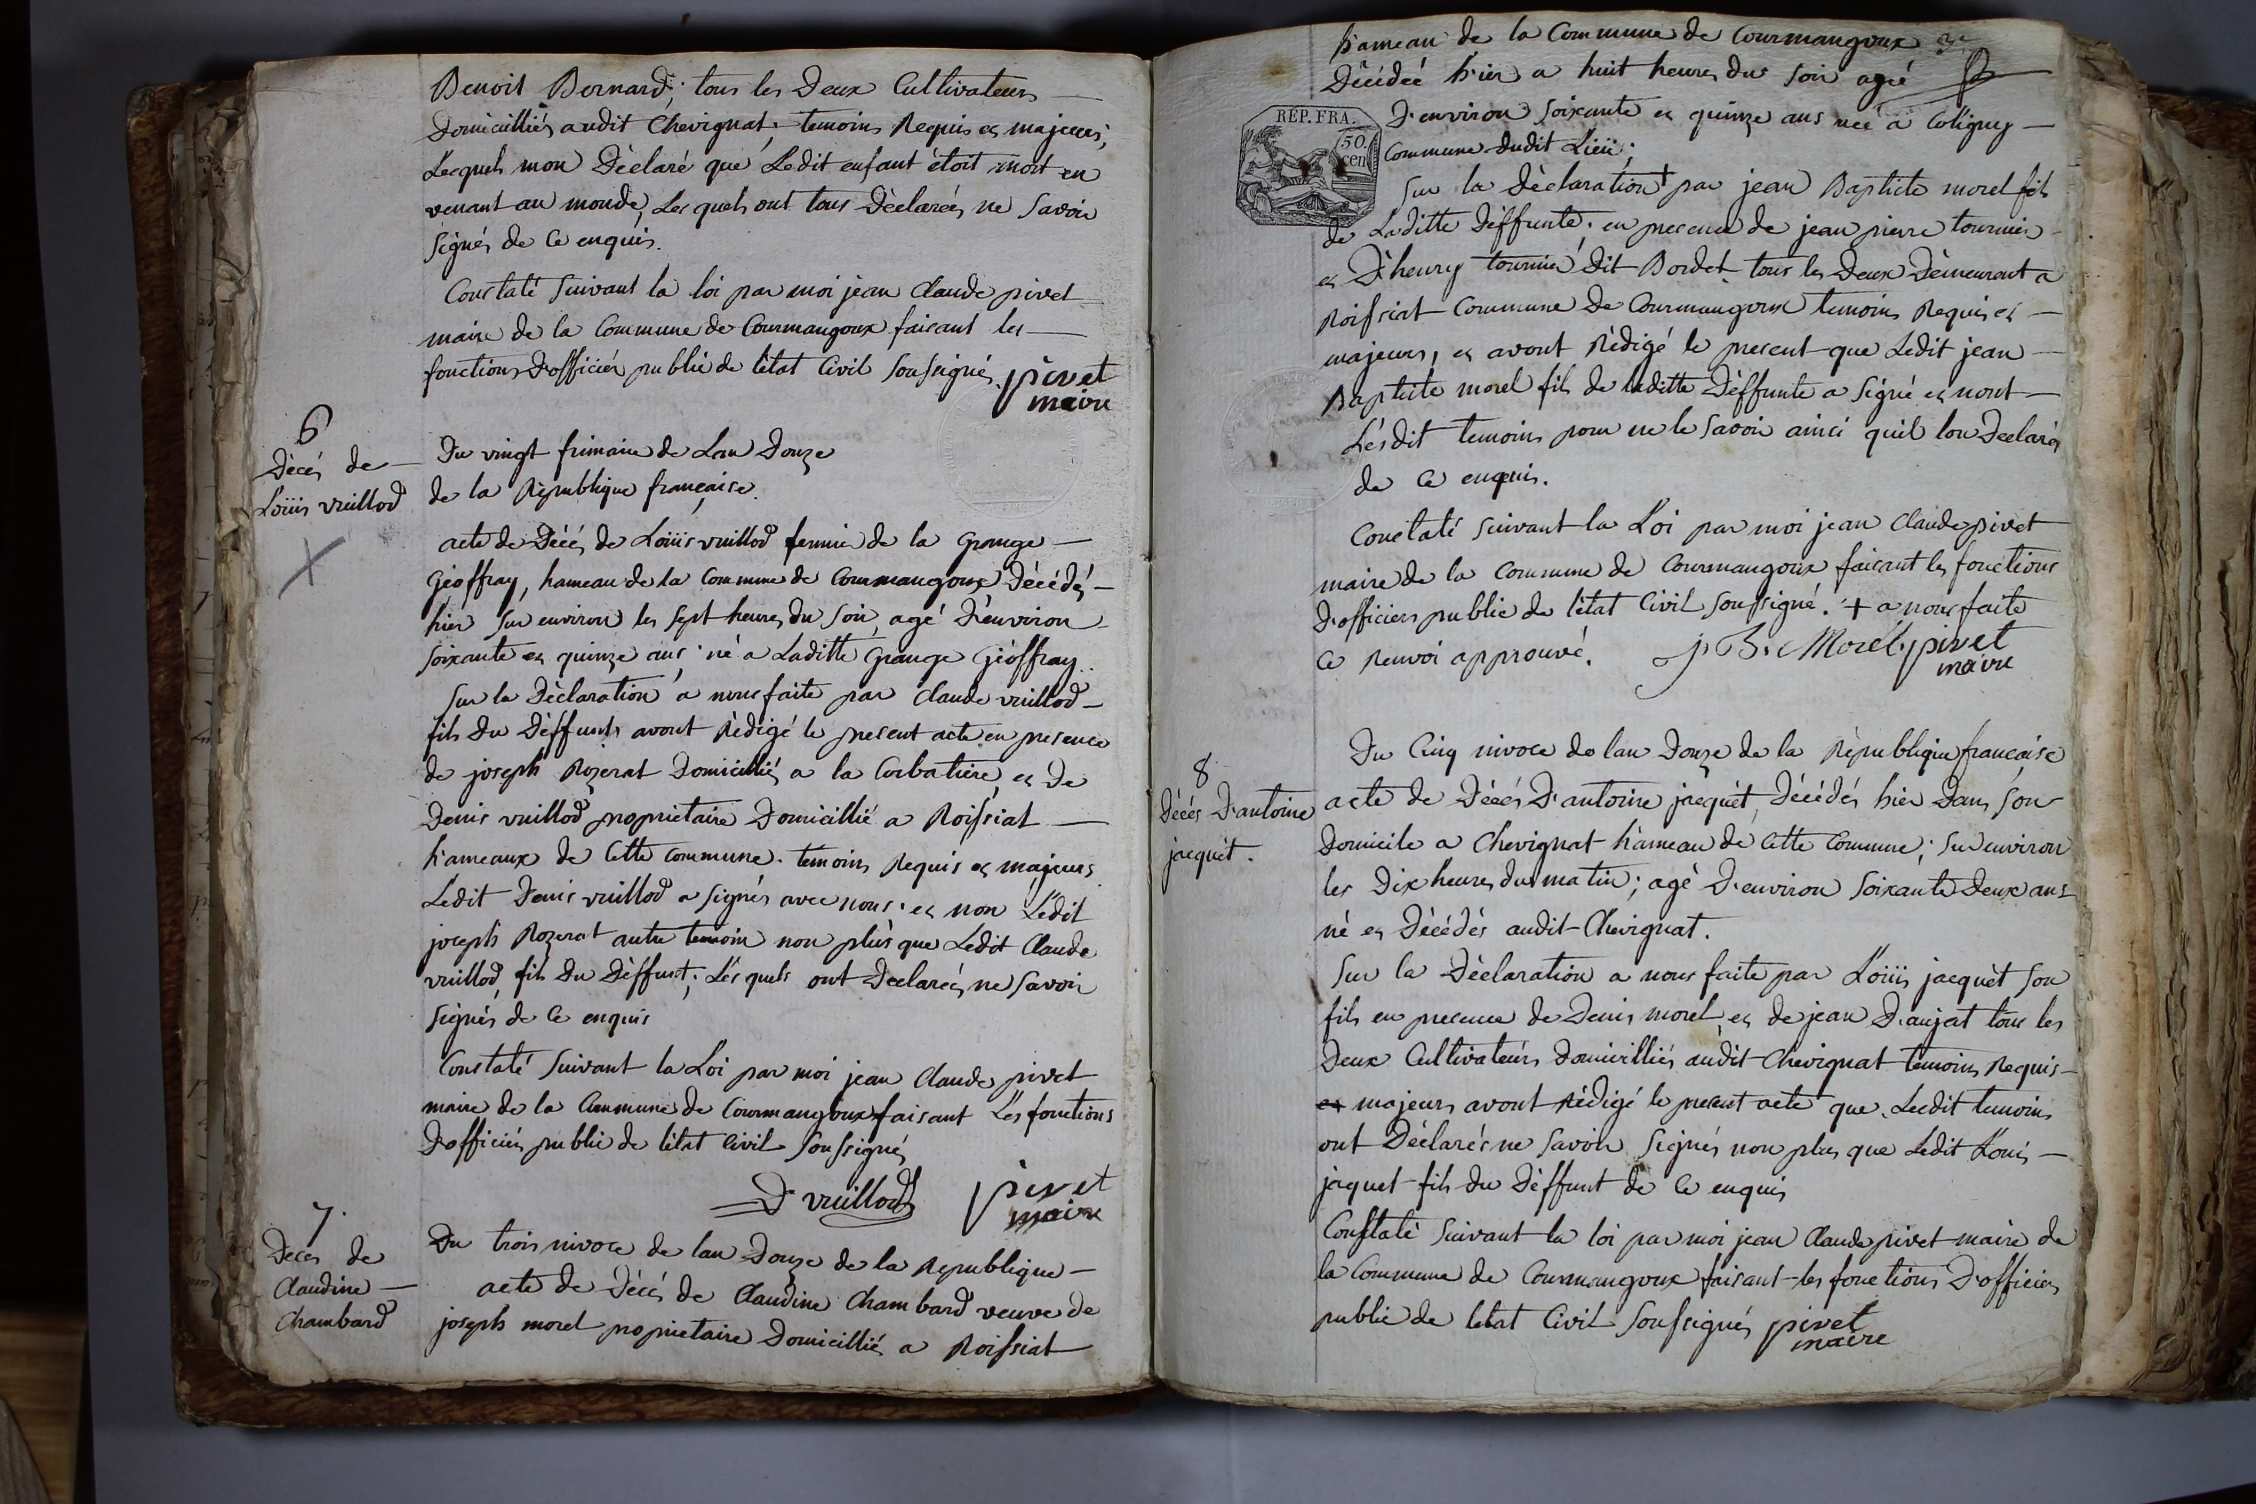 Benoit Bernard; tous les Deux Cultivateurs
Domicilliés audit Chevignat; temoins Requis et majeurs;
Lesquels mon Déclaré que Ledit enfant étoit mort en
venant au monde, Les quels ont tous Déclarés ne Savoir
Signés de Ce enquis.
Constaté Suivant la loi par moi jean Claude pivet
maire de la Commune de Courmangoux faisant les
fonctions D'officier public de l'état Civil Soussigné.
pivet
maire
6
Décés de
Loüis vuillod
Du vingt frimaire de Lan Douze
de la République française.
acte de Décés de Loüis vuillod fermier de la Grange
Géoffray, hameau de la Commune de Courmangoux Décédé
hier Sur environ les Sept heures du Soir, agé D'environ
Soixante et quinze ans; né a Laditte Grange Géoffray.
Sur la Déclaration a nous faite par Claude vuillod
fils Du Déffunts avont Rédigé le present acte en presence
de joseph Rozerat Domicilliés a la Corbatiere, et De
Denis vuillod propriétaire Domicillié a Roissiat
hameaux de Cette Commune. temoins Requis et majeurs
Ledit Denis vuillod a Signés avec nous; et non Ledit
joseph Rozerat autre temoin non plus que Ledit Claude
vuillod, fils Du Déffunt; Les quels ont Declarés ne Savoir
Signés de Ce enquis
Constaté Suivant la Loi par moi jean Claude pivet
maire de la Commune de Courmangoux faisant Les fonctions
D'officiés public de l'état Civil Soussignés
D vuillod
pivet
maire
7.
Deces de
Claudine
Chambard
Du trois nivose de lan Douze de la Republique
acte de Décés de Claudine Chambard veuve de
joseph morel propriétaire Domicilliés a Roissiat
hameau de la Commune de Courmangoux
Décédée hier a huit heures du Soir agé
REP. FRA.
50
cen
D'environ Soixante et quinze ans née a Coligny
Commune dudit Lieu;
Sur la Déclaration + par jean Baptiste morel fils
de Laditte Déffunte; en presence de jean pierre tournier
et D'henry tournié Dit Bordet tous les Deux Demeurant a
Roissiat Commune De Courmangoux temoins Requis et
majeurs, et avont Rédigé le present que Ledit jean
Baptiste morel fils de laditte Déffunte a Signé et nont
Lesdit temoins pour ne le Savoir ainci quil lon Declarés
de Ce enquis.
Constaté Suivant la Loi par moi jean Claude pivet
maire de la Commune de Courmangoux faisant les fonctions
D'officiers public de l'état Civil Soussigné. + a nous faite
Ce Renvoi approuvé.
J. B. Morel
pivet
maire
8
Décés D'antoine
jacquet.
Du Cinq nivoce de lan Douze de la République française
acte de Décés D'antoine jacquét, Décédés hier Dans Son
Domicile a Chevignat hameau de Cette Commune; Sur environ
les Dix heures du matin; agé D'environ Soixante Deux ans
né et Décédés audit Chevignat.
Sur la Déclaration a nous faite par Loüis jacquèt Son
fils en presence de Denis morel, et de jean D'aujat tous les
Deux Cultivateurs Domicilliés audit Chevignat temoins Requis
et majeurs avont Rédigé le present acte que Lesdit temoins
ont Déclarés ne Savoir Signés non plus que Ledit Louis
jaquet fils du Déffunt de Ce enquis
Constaté Suivant la loi par moi jean Claude pivet maire de
la Commune de Courmangoux faisant les fonctions D'officier
public de létat Civil Soussignés
pivet
maire